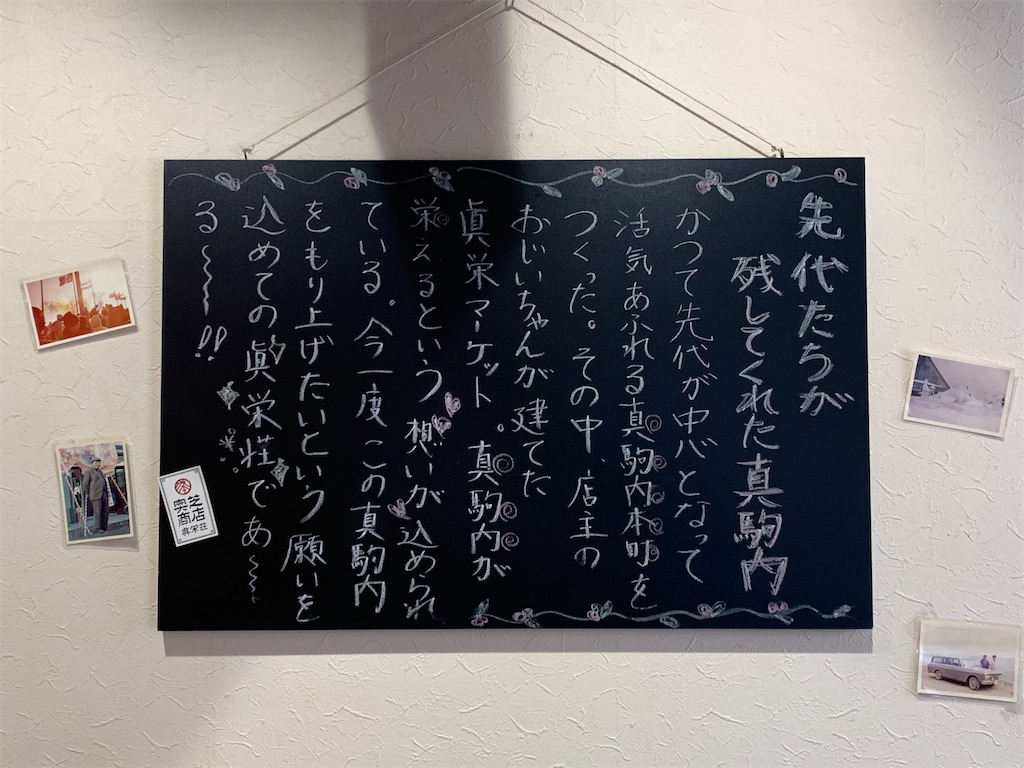 先代たちが
残してくれた真駒内
かつて先代が中心となって
活気あふれる真駒内本町を
つくった。その中、店主の
おじいちゃんが建てた
眞栄マーケット。真駒内が
栄えるという想いが込められ
ている。今一度この真駒内
をもり上げたいという願いを
込めての眞栄荘であ〜
る〜〜〜!!
奥芝
商店
眞栄荘